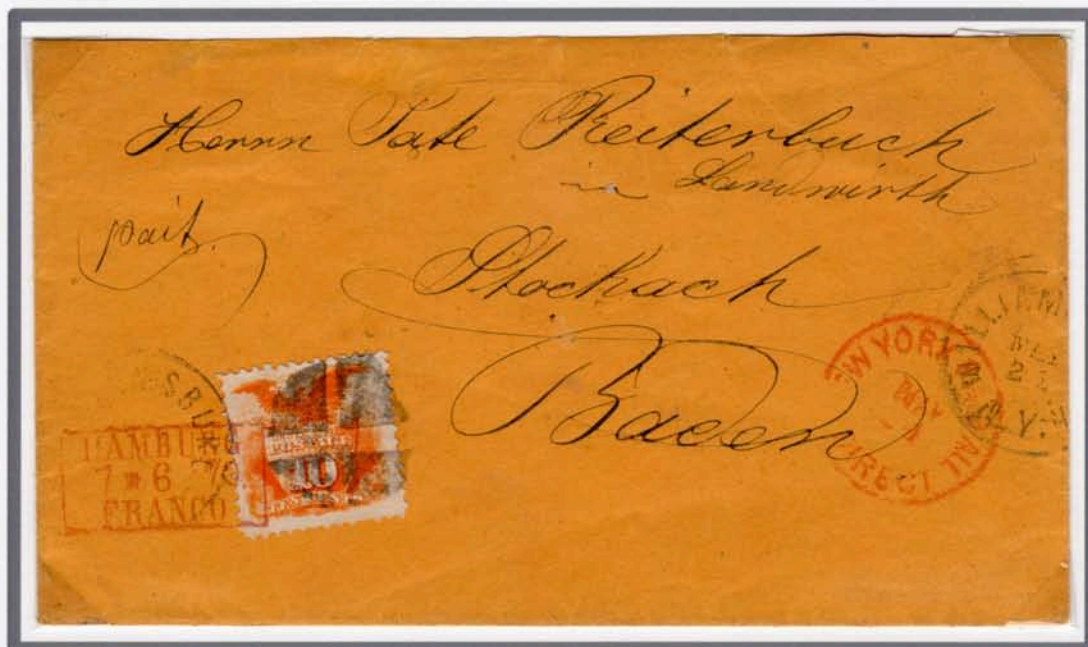 Herrn Tate Reiterbuch
in Landwirth
pait.
Stockach
Baden
HAMBURG
7 6 70
FRANCO
10
W YORK
MAY
DIRECT
LLIAM
SBURG
N.Y.